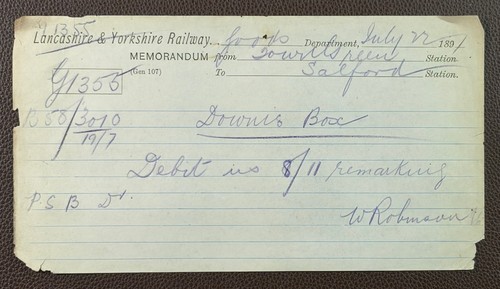 B 55
Lancashire & Yorkshire Railway. Goods Department, July 22 1891
MEMORANDUM from Station.
(Gen 107) To Salford Station.
G1355
B55/3010
19/7
Downie Box
Debit us 8/11 remarking
P.S.B Dt.
W Robinson